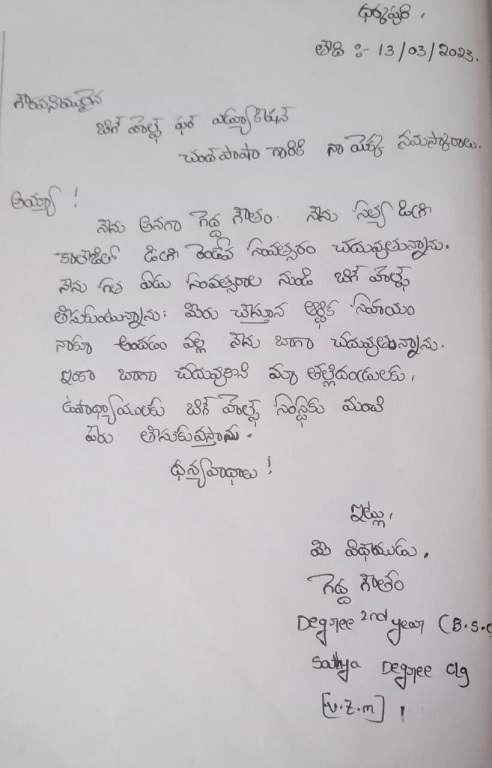 ధర్మపురి,
తేది :- 13/03/2023.
గౌరవనీయులైన
బిగ్ హెల్ప్ ఫర్ ఎడ్యుకేషన్
చాంద్ పాషా గారికి నా యొక్క నమస్కారాలు.
అయ్యా !
నేను అనగా గెద్ద గౌతం. నేను సత్య డిగ్రీ
కాలేజీలో డిగ్రీ రెండోవ సంవత్సరం చదువుతున్నాను.
నేను గత ఏడు సంవత్సరాల నుండి బిగ్ హెల్ప్
తీసుకుంటున్నాను. మీరు చేస్తూన ఆర్థిక సహాయం
నాకూ అందడం వల్ల నేను బాగా చదువుతున్నాను.
ఇంకా బాగా చదువుకొని మా తల్లిదండ్రులకు,
ఉపాధ్యాయులకు బిగ్ హెల్ప్ సంస్థకు మంచి
పేరు తీసుకువస్తాను.
ధన్యవాదాలు !
ఇట్లు,
మీ విధేయుడు,
గెద్ద గౌతం
Degree 2nd year (B.S.C
Sathya Degree clg
[V.Z.M] !